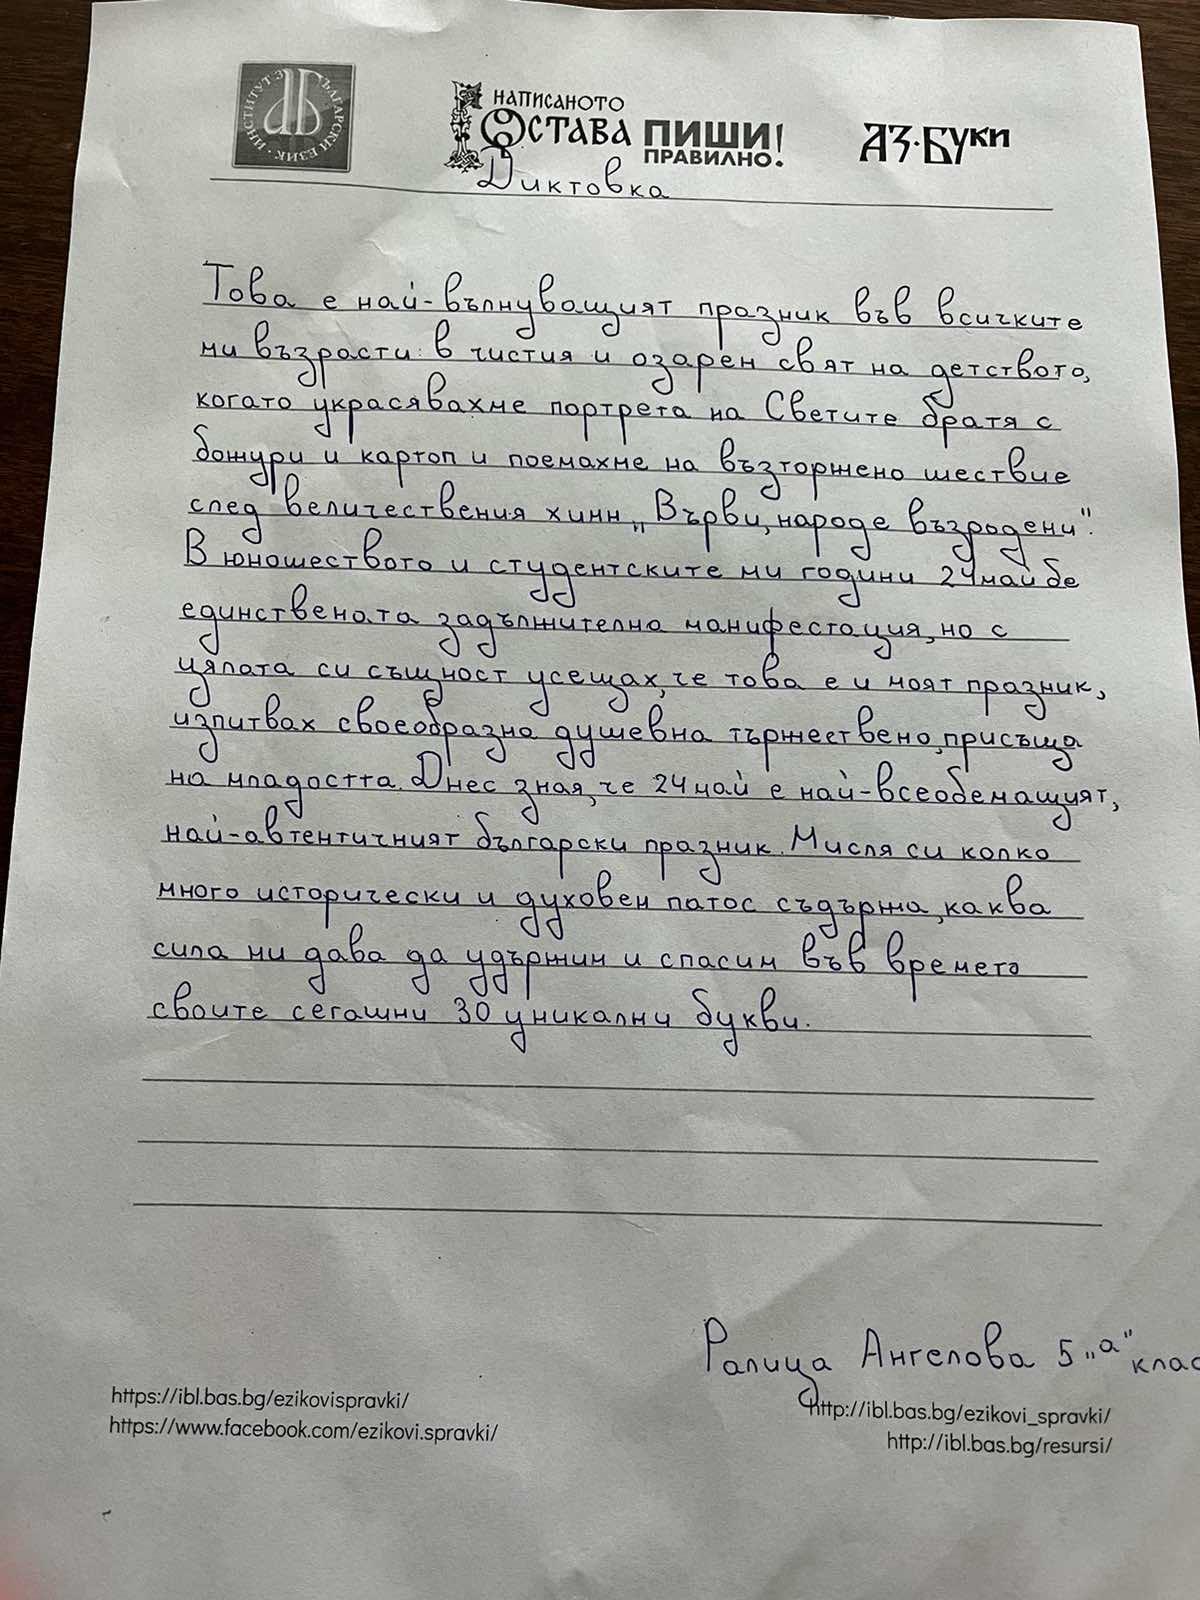 ИНСТИТУТ ЗА БЪЛГАРСКИ ЕЗИК
НАПИСАНОТО
ОСТАВА ПИШИ
ПРАВИЛНО!
АЗ·БУКИ
Диктовка
Това е най-вълнуващият празник във всичките
ми възрасти: в чистия и озарен свят на детството,
когато украсявахме портрета на Светите братя с
божури и картоп и поемахме на възторжено шествие
след величествения химн „Върви, народе възродени“.
В юношеството и студентските ми години 24 май бе
единствената задължителна манифестация, но с
цялата си същност усещах, че това е и моят празник,
изпитвах своеобразна душевна тържествено, присъща
на младостта. Днес зная, че 24 май е най-всеобемащият,
най-автентичният български празник. Мисля си колко
много исторически и духовен патос съдържа, каква
сила ни дава да удържим и спасим във времето
своите сегашни 30 уникални букви.
Ралица Ангелова 5 „а“ клас
https://ibl.bas.bg/ezikovispravki/
https://www.facebook.com/ezikovi.spravki/
http://ibl.bas.bg/ezikovi_spravki/
http://ibl.bas.bg/resursi/